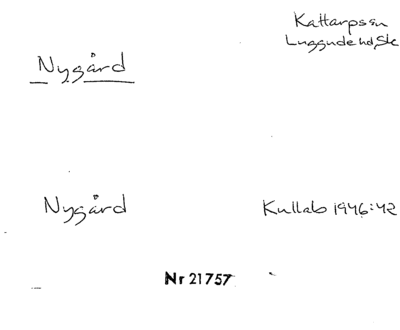 Kattarps sn
Luggude hd Sk
Nygård
Nygård
Kullab 1946:42
Nr 21757